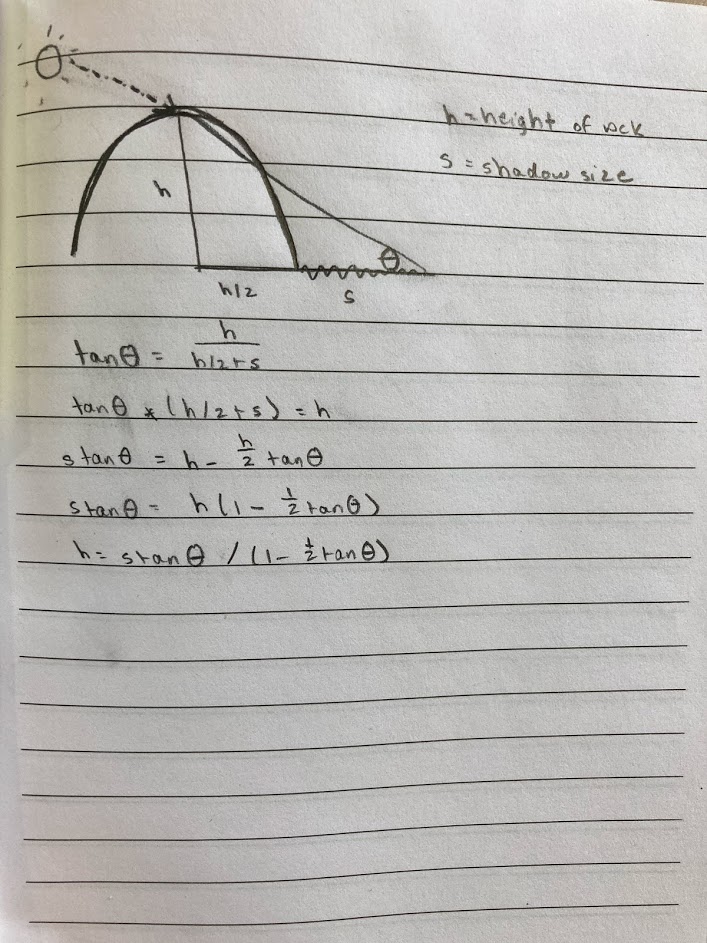 h = height of rock
s = shadow size
h
θ
h/2
s
tanθ = h / h/2+s
tanθ * (h/2+s) = h
s tanθ = h - h/2 tanθ
s tanθ = h(1 - 1/2 tanθ)
h = s tanθ / (1 - 1/2 tanθ)